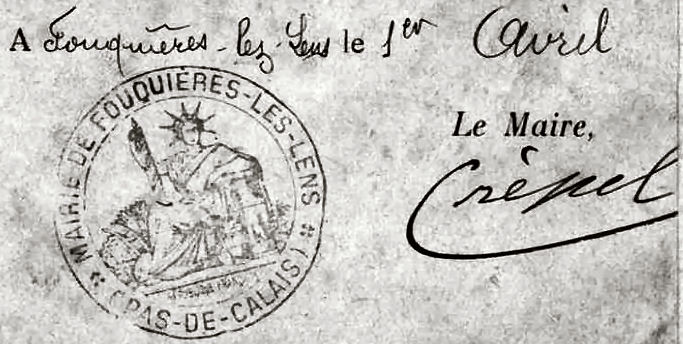 A Fouquières-lez-Lens le 1er Avril
Le Maire,
Crépel
MAIRIE DE FOUQUIÈRES-LES-LENS
(PAS-DE-CALAIS)